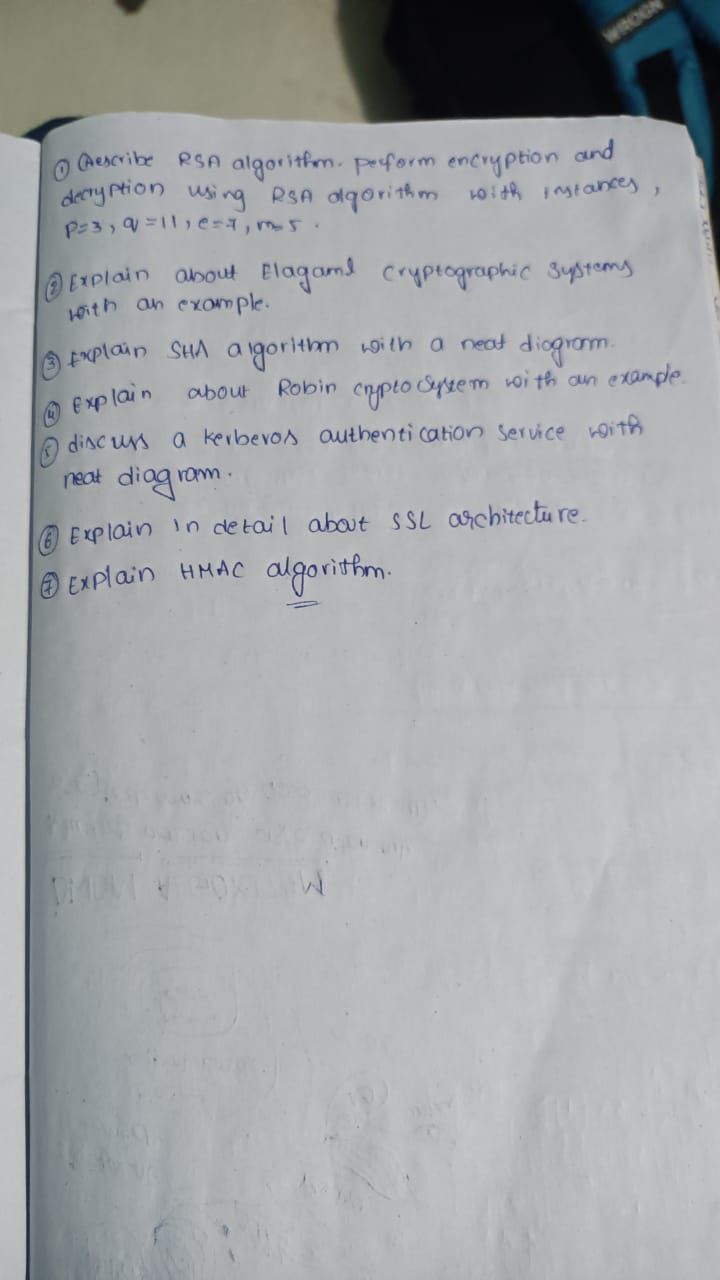 WROGN
① Describe RSA algorithm. perform encryption and
decryption using RSA algorithm with instances,
P=3, q=11, e=7, m=5.
② Explain about Elagaml cryptographic systems
with an example.
③ Explain SHA algorithm with a neat diagram.
④ Explain about Robin cryptosystem with an example.
⑤ discuss a kerberos authentication service with
neat diagram.
⑥ Explain in detail about SSL architecture.
⑦ Explain HMAC algorithm.